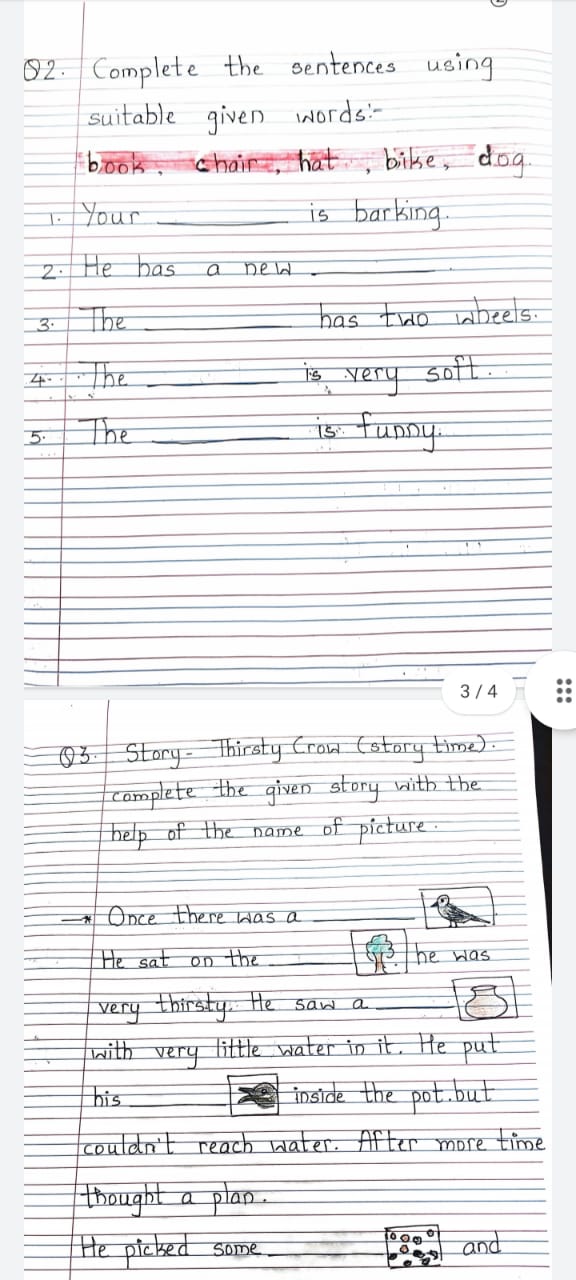 Q2. Complete the sentences using
suitable given words:-
book, chair, hat, bike, dog.
1. Your ________ is barking.
2. He has a new ________.
3. The ________ has two wheels.
4. The ________ is very soft.
5. The ________ is funny.
3 / 4
Q3. Story - Thirsty Crow (story time).
complete the given story with the
help of the name of picture.
→* Once there was a ________
He sat on the ________ he was
very thirsty. He saw a ________
with very little water in it. He put
his ________ inside the pot. but
couldn't reach water. After more time
thought a plan.
He picked some ________ and